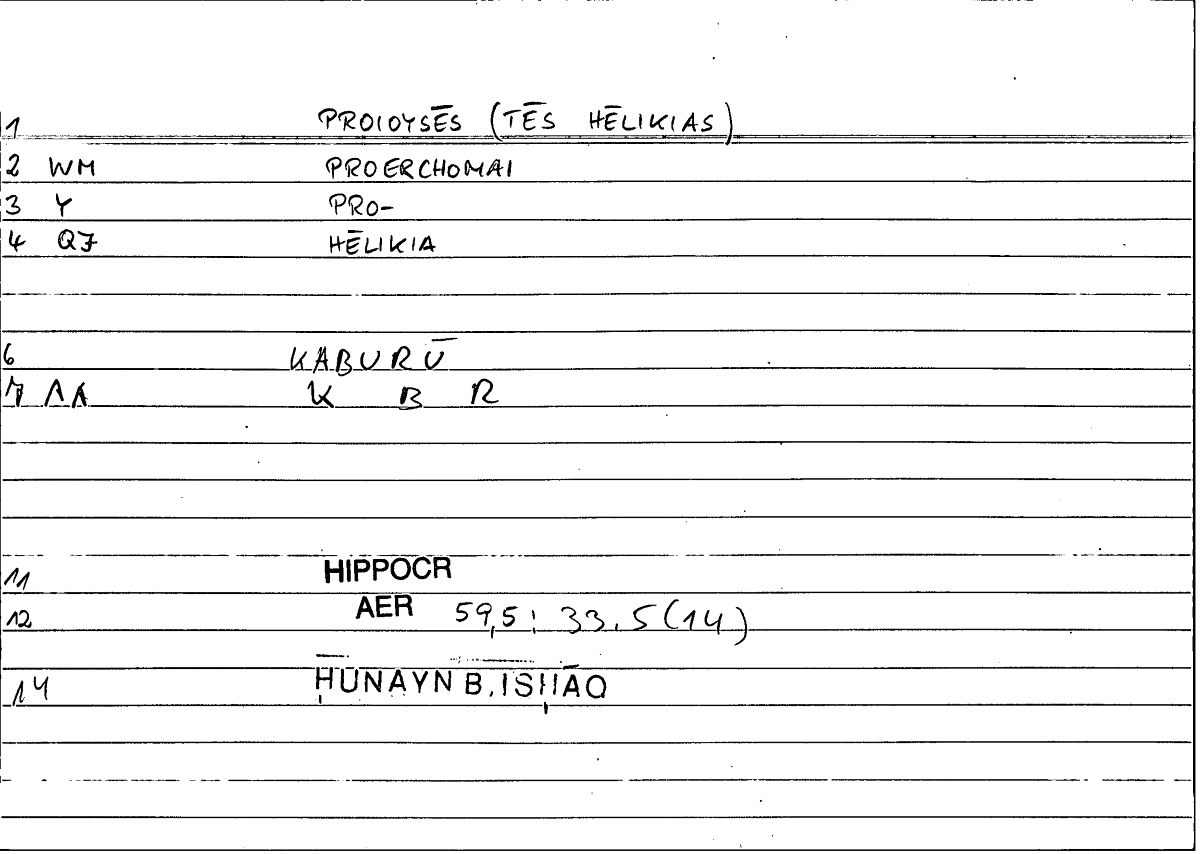 1 PROIOYSĒS (TĒS HĒLIKIAS)
2 WM PROERCHOMAI
3 Y PRO-
4 QJ HĒLIKIA
6 KABURŪ
7 AA K B R
11 HIPPOCR
12 AER 59,5; 33.5(14)
14 ḤUNAYN B. ISḤĀQ